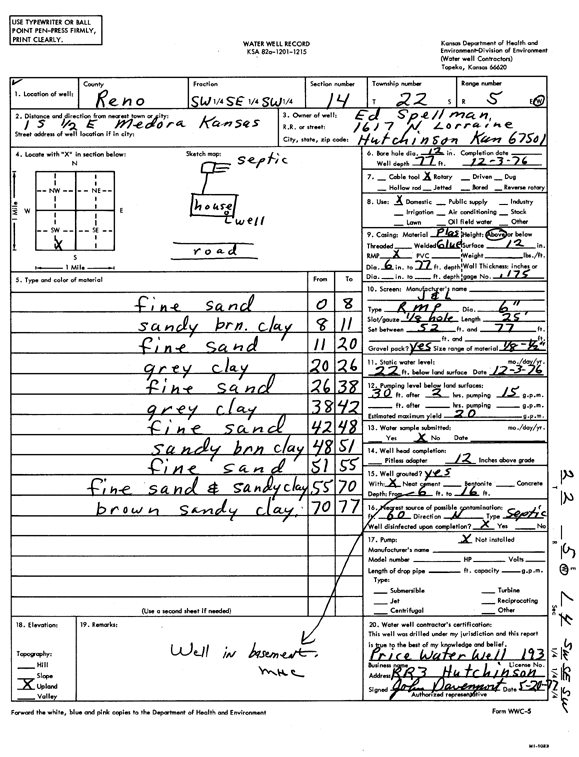 USE TYPEWRITER OR BALL
POINT PEN-PRESS FIRMLY,
PRINT CLEARLY.
WATER WELL RECORD
KSA 82a-1201-1215
Kansas Department of Health and
Environment-Division of Environment
(Water well Contractors)
Topeka, Kansas 66620
1. Location of well:
County
Reno
Fraction
SW 1/4 SE 1/4 SW 1/4
Section number
14
Township number
T 22 S
Range number
R 5 E/W
2. Distance and direction from nearest town or city:
1 S 1/2 E Medora Kansas
Street address of well location if in city:
3. Owner of well: Ed Spellman,
R.R. or street: 1617 N Lorraine
City, state, zip code: Hutchinson Kan 67501
4. Locate with "X" in section below:
N
NW NE
W E
SW SE
X
S
1 Mile
1 Mile
Sketch map:
septic
house
well
road
6. Bore hole dia. 12 in. Completion date
Well depth 77 ft. 12-3-76
7. Cable tool X Rotary Driven Dug
Hollow rod Jetted Bored Reverse rotary
8. Use: X Domestic Public supply Industry
Irrigation Air conditioning Stock
Lawn Oil field water Other
9. Casing: Material Plas Height: Above or below
Threaded Welded Glue Surface 12 in.
RMP X PVC Weight lbs./ft.
Dia. 6 in. to 77 ft. depth Wall Thickness: inches or
Dia. in. to ft. depth gage No. .175
10. Screen: Manufacturer's name
J & L
Type RMP Dia. 6"
Slot/gauze 1/8 hole Length 25'
Set between 52 ft. and 77 ft.
ft. and ft.
Gravel pack? Yes Size range of material 1/8-1/2"
11. Static water level: mo./day/yr.
22 ft. below land surface Date 12-3-76
12. Pumping level below land surfaces:
30 ft. after 2 hrs. pumping 15 g.p.m.
ft. after hrs. pumping g.p.m.
Estimated maximum yield 20 g.p.m.
13. Water sample submitted: mo./day/yr.
Yes X No Date
14. Well head completion:
Pitless adapter 12 Inches above grade
15. Well grouted? yes
With: X Neat cement Bentonite Concrete
Depth: From 6 ft. to 16 ft.
16. Nearest source of possible contamination:
ft 60 Direction N Type Septic
Well disinfected upon completion? X Yes No
17. Pump: X Not installed
Manufacturer's name
Model number HP Volts
Length of drop pipe ft. capacity g.p.m.
Type:
Submersible Turbine
Jet Reciprocating
Centrifugal Other
5. Type and color of material From To
fine sand 0 8
sandy brn. clay 8 11
fine sand 11 20
grey clay 20 26
fine sand 26 38
grey clay 38 42
fine sand 42 48
sandy brn clay 48 51
fine sand 51 55
fine sand & sandy clay 55 70
brown sandy clay 70 77
(Use a second sheet if needed)
18. Elevation:
Topography:
Hill
Slope
X Upland
Valley
19. Remarks:
Well in basement.
MHC
20. Water well contractor's certification:
This well was drilled under my jurisdiction and this report
is true to the best of my knowledge and belief.
Price Water Well 193
Business name License No.
Address RR3 Hutchinson
Signed John Davenport Date 5-20-77
Authorized representative
Forward the white, blue and pink copies to the Department of Health and Environment
Form WWC-5
22
5
W
14
Sec
SW SE SW
1/4 1/4 1/4